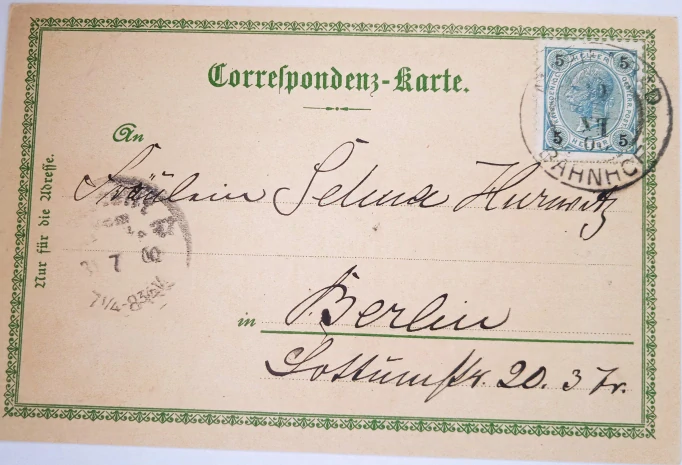 Correspondenz-Karte.
5 5
5 5
BAHNHO
An
Fräulein Selma Hurwitz
Nur für die Adresse.
7 00
7¼-8
in Berlin
Lottumstr. 20. 3 Tr.